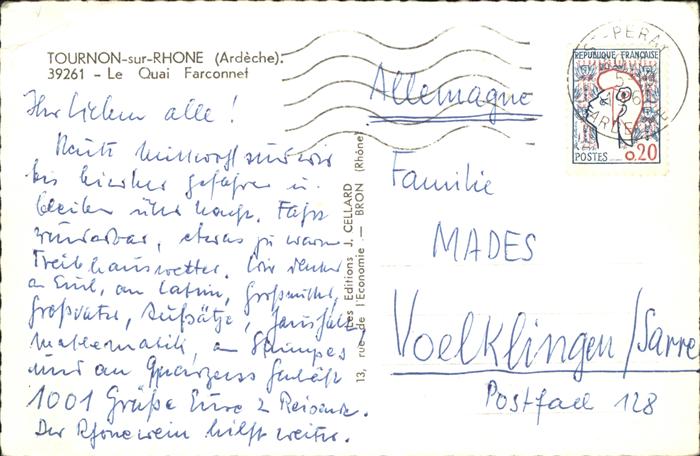 TOURNON-sur-RHONE (Ardèche).
39261 - Le Quai Farconnet
Ihr lieben alle !
Heute Mittwoch sind wir
bis hierher gefahren u.
bleiben über Nacht. Fahrt
wunderbar, etwas zu warm
Treibhauswetter. Wir denken
an Euch, an Latein, Großmutter,
Großvater, Aufsätze,
Mathematik, an
und an
1001 Grüße Eure 2 Reisende.
Der Rhonewein hilft weiter.
Les Editions J. CELLARD
13, rue de l'Economie — BRON (Rhône)
ST-PERAY
ARDECHE
REPUBLIQUE FRANÇAISE
POSTES 0,20
Allemagne
Familie
MADES
Voelklingen/Sarre
Postfach 128